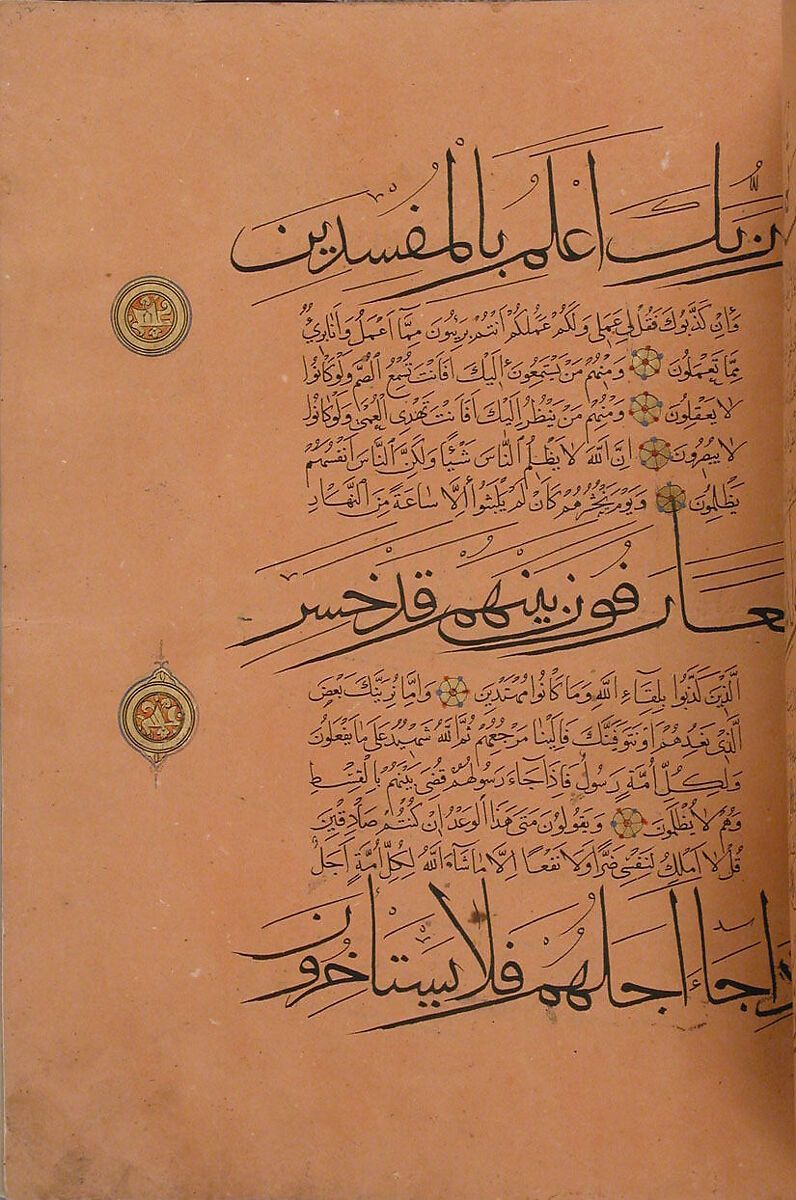 وربك اعلم بالمفسدين
وَاِن كَذَّبُوكَ فَقُل لِّى عَمَلِى وَلَكُمْ عَمَلُكُمْ اَنتُم بَرِيـُٔونَ مِمَّا اَعْمَلُ وَاَنَا بَرِىٌٔ
مِمَّا تَعْمَلُونَ وَمِنْهُم مَّن يَسْتَمِعُونَ اِلَيْكَ اَفَاَنتَ تُسْمِعُ الصُّمَّ وَلَوْ كَانُوا
لَا يَعْقِلُونَ وَمِنْهُم مَّن يَنظُرُ اِلَيْكَ اَفَاَنتَ تَهْدِى الْعُمْىَ وَلَوْ كَانُوا
لَا يُبْصِرُونَ اِنَّ اللّٰهَ لَا يَظْلِمُ النَّاسَ شَيْـًٔا وَلَكِنَّ النَّاسَ اَنفُسَهُمْ
يَظْلِمُونَ وَيَوْمَ نَحْشُرُهُمْ كَاَن لَّمْ يَلْبَثُوا اِلَّا سَاعَةً مِّنَ النَّهَارِ
عارفون بينهم قد خسر
الَّذِينَ كَذَّبُوا بِلِقَاءِ اللّٰهِ وَمَا كَانُوا مُهْتَدِينَ وَاِمَّا نُرِيَنَّكَ بَعْضَ
الَّذِى نَعِدُهُمْ اَوْ نَتَوَفَّيَنَّكَ فَاِلَيْنَا مَرْجِعُهُمْ ثُمَّ اللّٰهُ شَهِيدٌ عَلَى مَا يَفْعَلُونَ
وَلِكُلِّ اُمَّةٍ رَّسُولٌ فَاِذَا جَاءَ رَسُولُهُمْ قُضِىَ بَيْنَهُم بِالْقِسْطِ
وَهُمْ لَا يُظْلَمُونَ وَيَقُولُونَ مَتَى هَذَا الْوَعْدُ اِن كُنتُمْ صَادِقِينَ
قُل لَّا اَمْلِكُ لِنَفْسِى ضَرًّا وَلَا نَفْعًا اِلَّا مَا شَاءَ اللّٰهُ لِكُلِّ اُمَّةٍ اَجَلٌ
اذا جاء اجلهم فلا يستاخرون